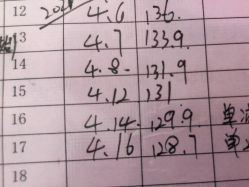 12 202 4.6 136.
13 4.7 133.9.
14 4.8. 131.9
15 4.12 131
16 4.14. 129.9.
17 4.16 128.7
18